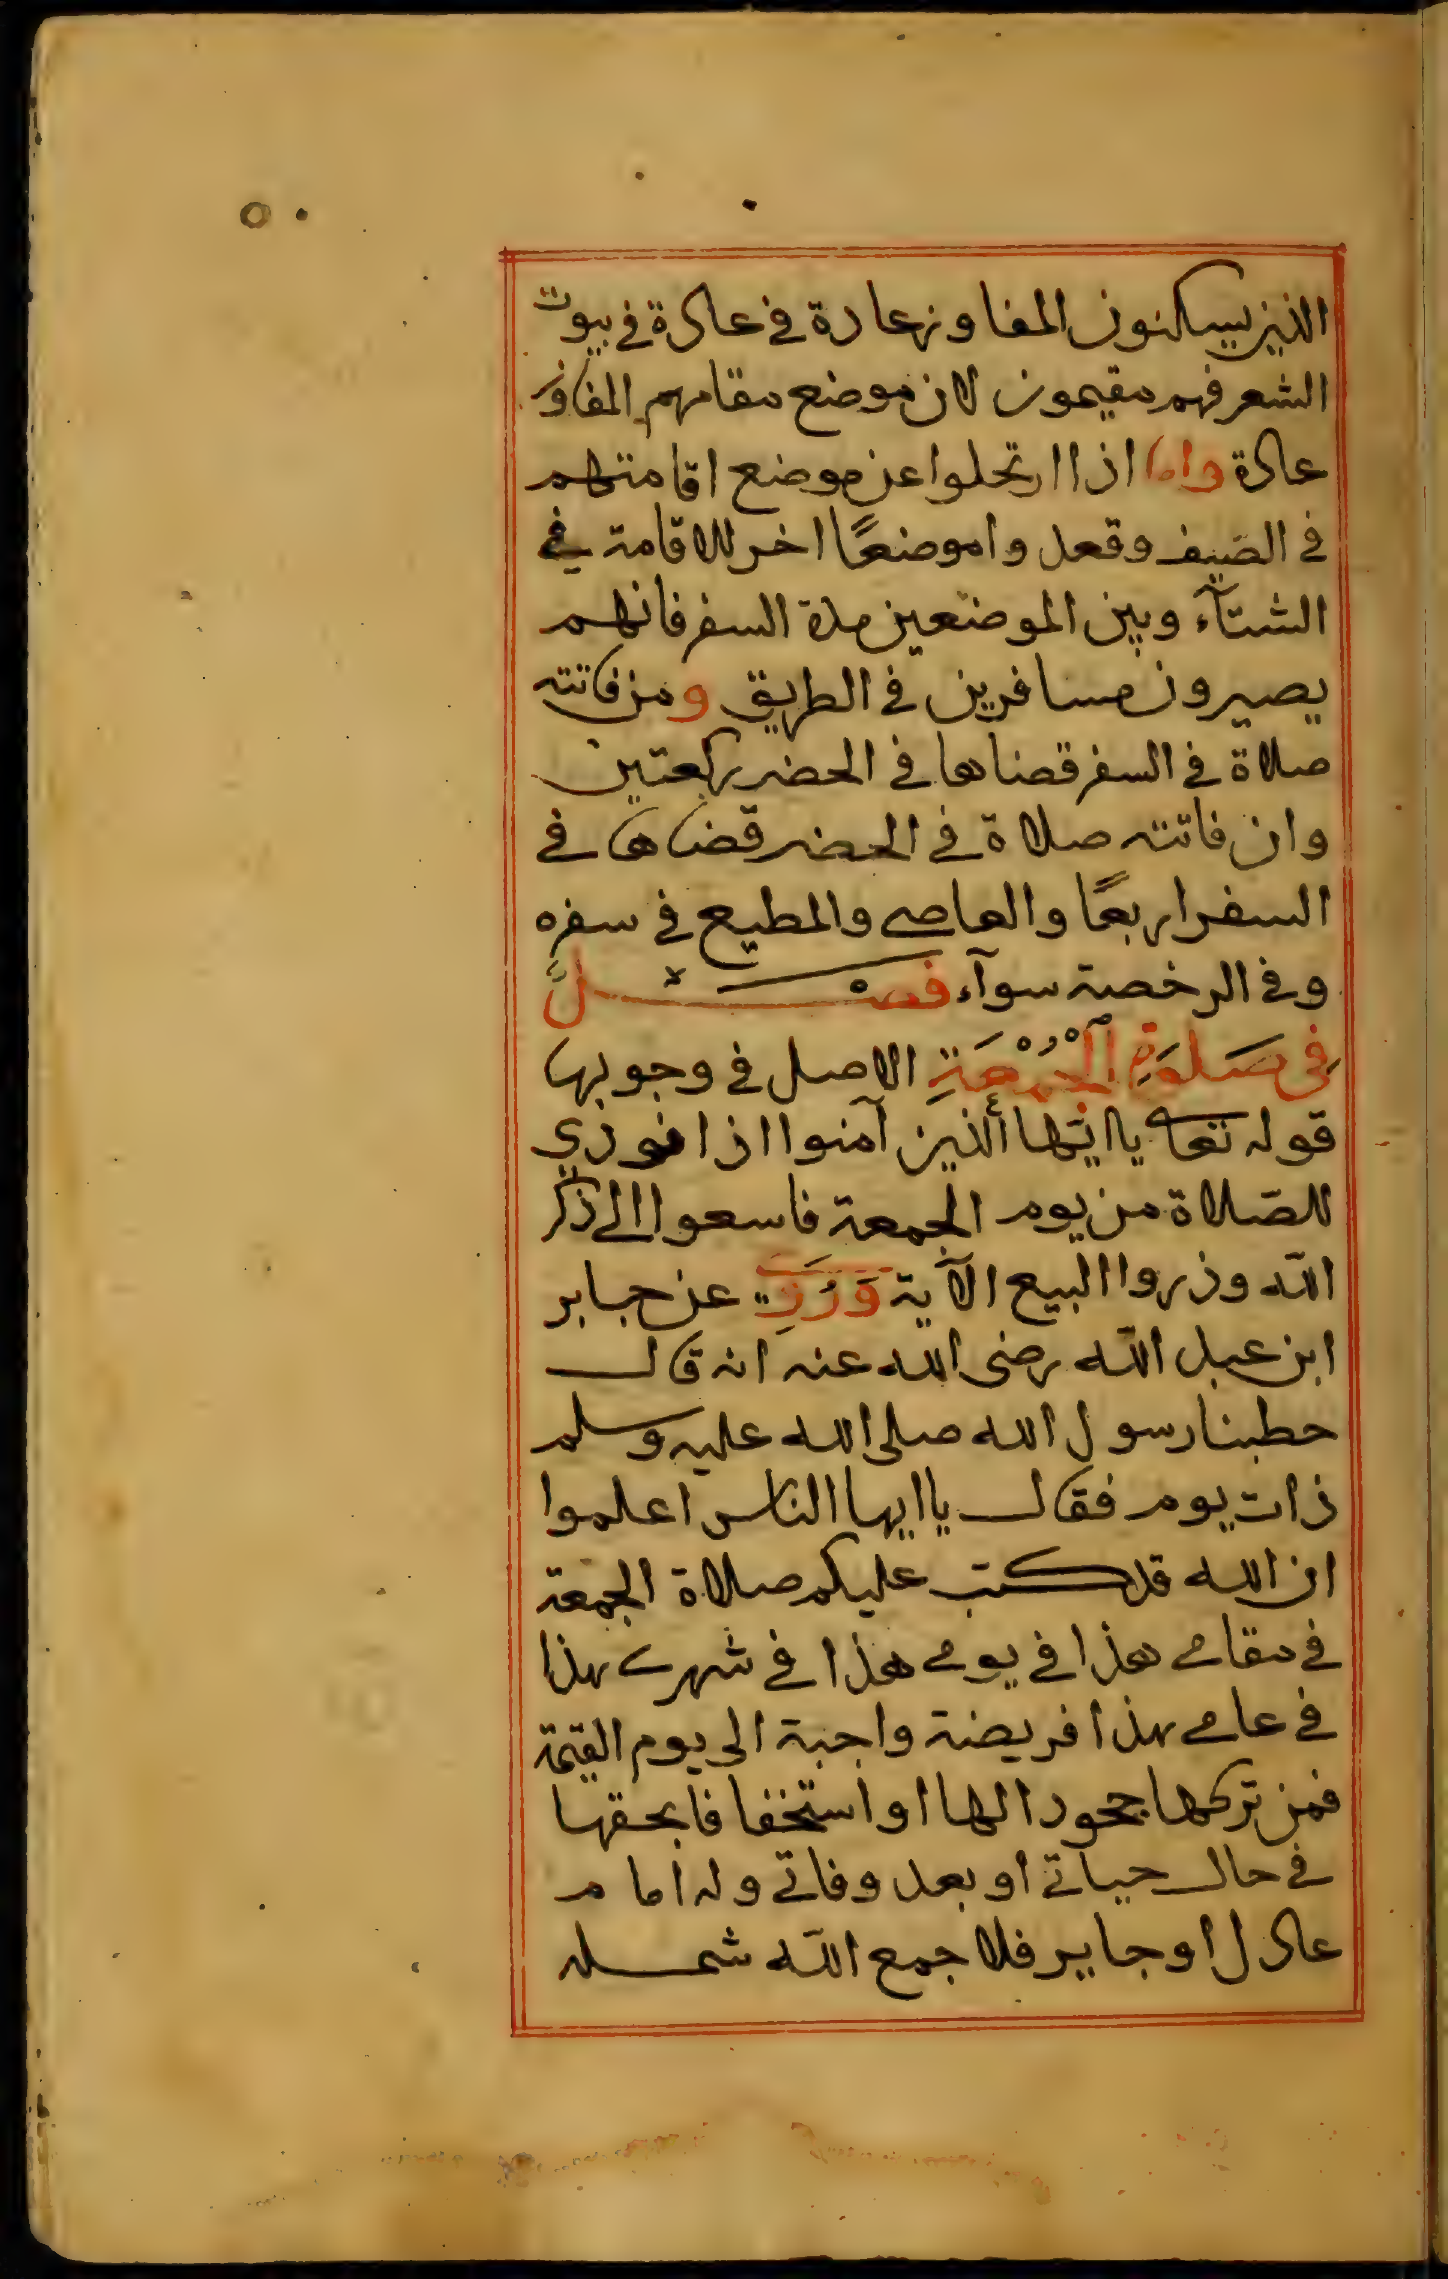 ٥٠
الذين يسكنون المفاوز عادة في عادة في بيوت
الشعر فهم مقيمون لان موضع مقامهم المفاوز
عادة واما اذا ارتحلوا عن موضع اقامتهم
في الصيف وقعدوا موضعًا اخر للاقامة في
الشتآء وبين الموضعين مدة السفر فانهم
يصيرون مسافرين في الطريق ومن فاتته
صلاة في السفر قضاها في الحضر ركعتين
وان فاتته صلاة في الحضر قضاها في
السفر اربعًا والعاصي والمطيع في سفره
وفي الرخصة سوآء فصلٌ
فِي صَلَوةِ الْجُمْعَةِ الاصل في وجوبها
قوله تعا يا ايّها الذين آمنوا اذا نودي
للصّلاة من يوم الجمعة فاسعوا الى ذكر
اللّه وذروا البيع الآية وَرُوِيَ عن جابر
ابن عبد اللّه رضى الله عنه انه قال
حطبنا رسول الله صلى الله عليه وسلم
ذات يوم فقال يا ايها الناس اعلموا
ان الله قد كتب عليكم صلاة الجمعة
في مقامي هذا في يومي هذا في شهري هذا
في عامي هذا فريضة واجبة الى يوم القيمة
فمن تركها جحودا لها او استخفافا بحقها
في حال حياتي او بعد وفاتي وله امام
عادل او جاير فلا جمع اللّه شمله